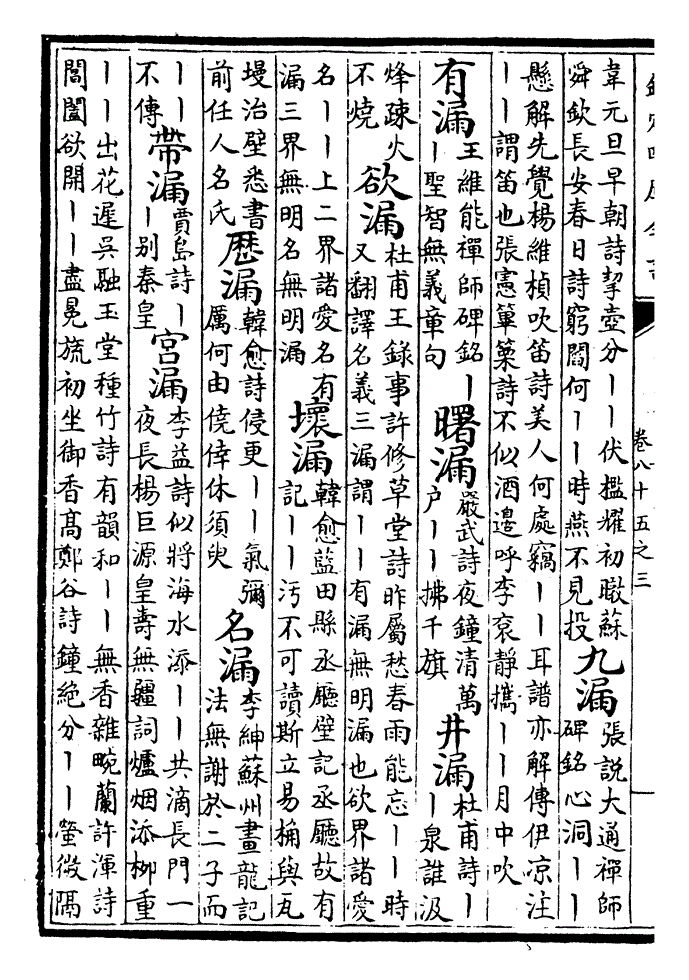 欽定四庫全書
卷八十五之三
韋元旦早朝詩挈壺分丨丨伏檻耀初暾蘇
舜欽長安春日詩窮閻何丨丨時燕不見投
九漏
張説大通禪師
碑銘心洞丨丨
懸解先覺楊維楨吹笛詩美人何處竊丨丨耳譜亦解傳伊凉注
丨丨謂笛也張憲篳篥詩不似酒邊呼李袞靜攜丨丨月中吹
有漏
王維能禪師碑銘丨
丨聖智無義章句
曙漏
嚴武詩夜鐘清萬
户丨丨拂千旗
井漏
杜甫詩丨
丨泉誰汲
烽疎火
不燒
欲漏
杜甫王錄事許修草堂詩昨屬愁春雨能忘丨丨時
又翻譯名義三漏謂丨丨有漏無明漏也欲界諸愛
名丨丨上二界諸愛名有
漏三界無明名無明漏
壞漏
韓愈藍田縣丞廳壁記丞廳故有
記丨丨污不可讀斯立易桷與瓦
墁治壁悉書
前任人名氏
歷漏
韓愈詩侵更丨丨氣彌
厲何由僥倖休須臾
名漏
李紳蘇州畫龍記
法無謝於二子而
丨丨
不傳
帶漏
賈島詩丨
丨别秦皇
宮漏
李益詩似將海水添丨丨共滴長門一
夜長楊巨源皇壽無疆詞爐烟添柳重
丨丨出花遲吳融玉堂種竹詩有韻和丨丨無香雜畹蘭許渾詩
閶闔欲開丨丨盡冕旒初坐御香高鄭谷詩鐘絶分丨丨螢微隔